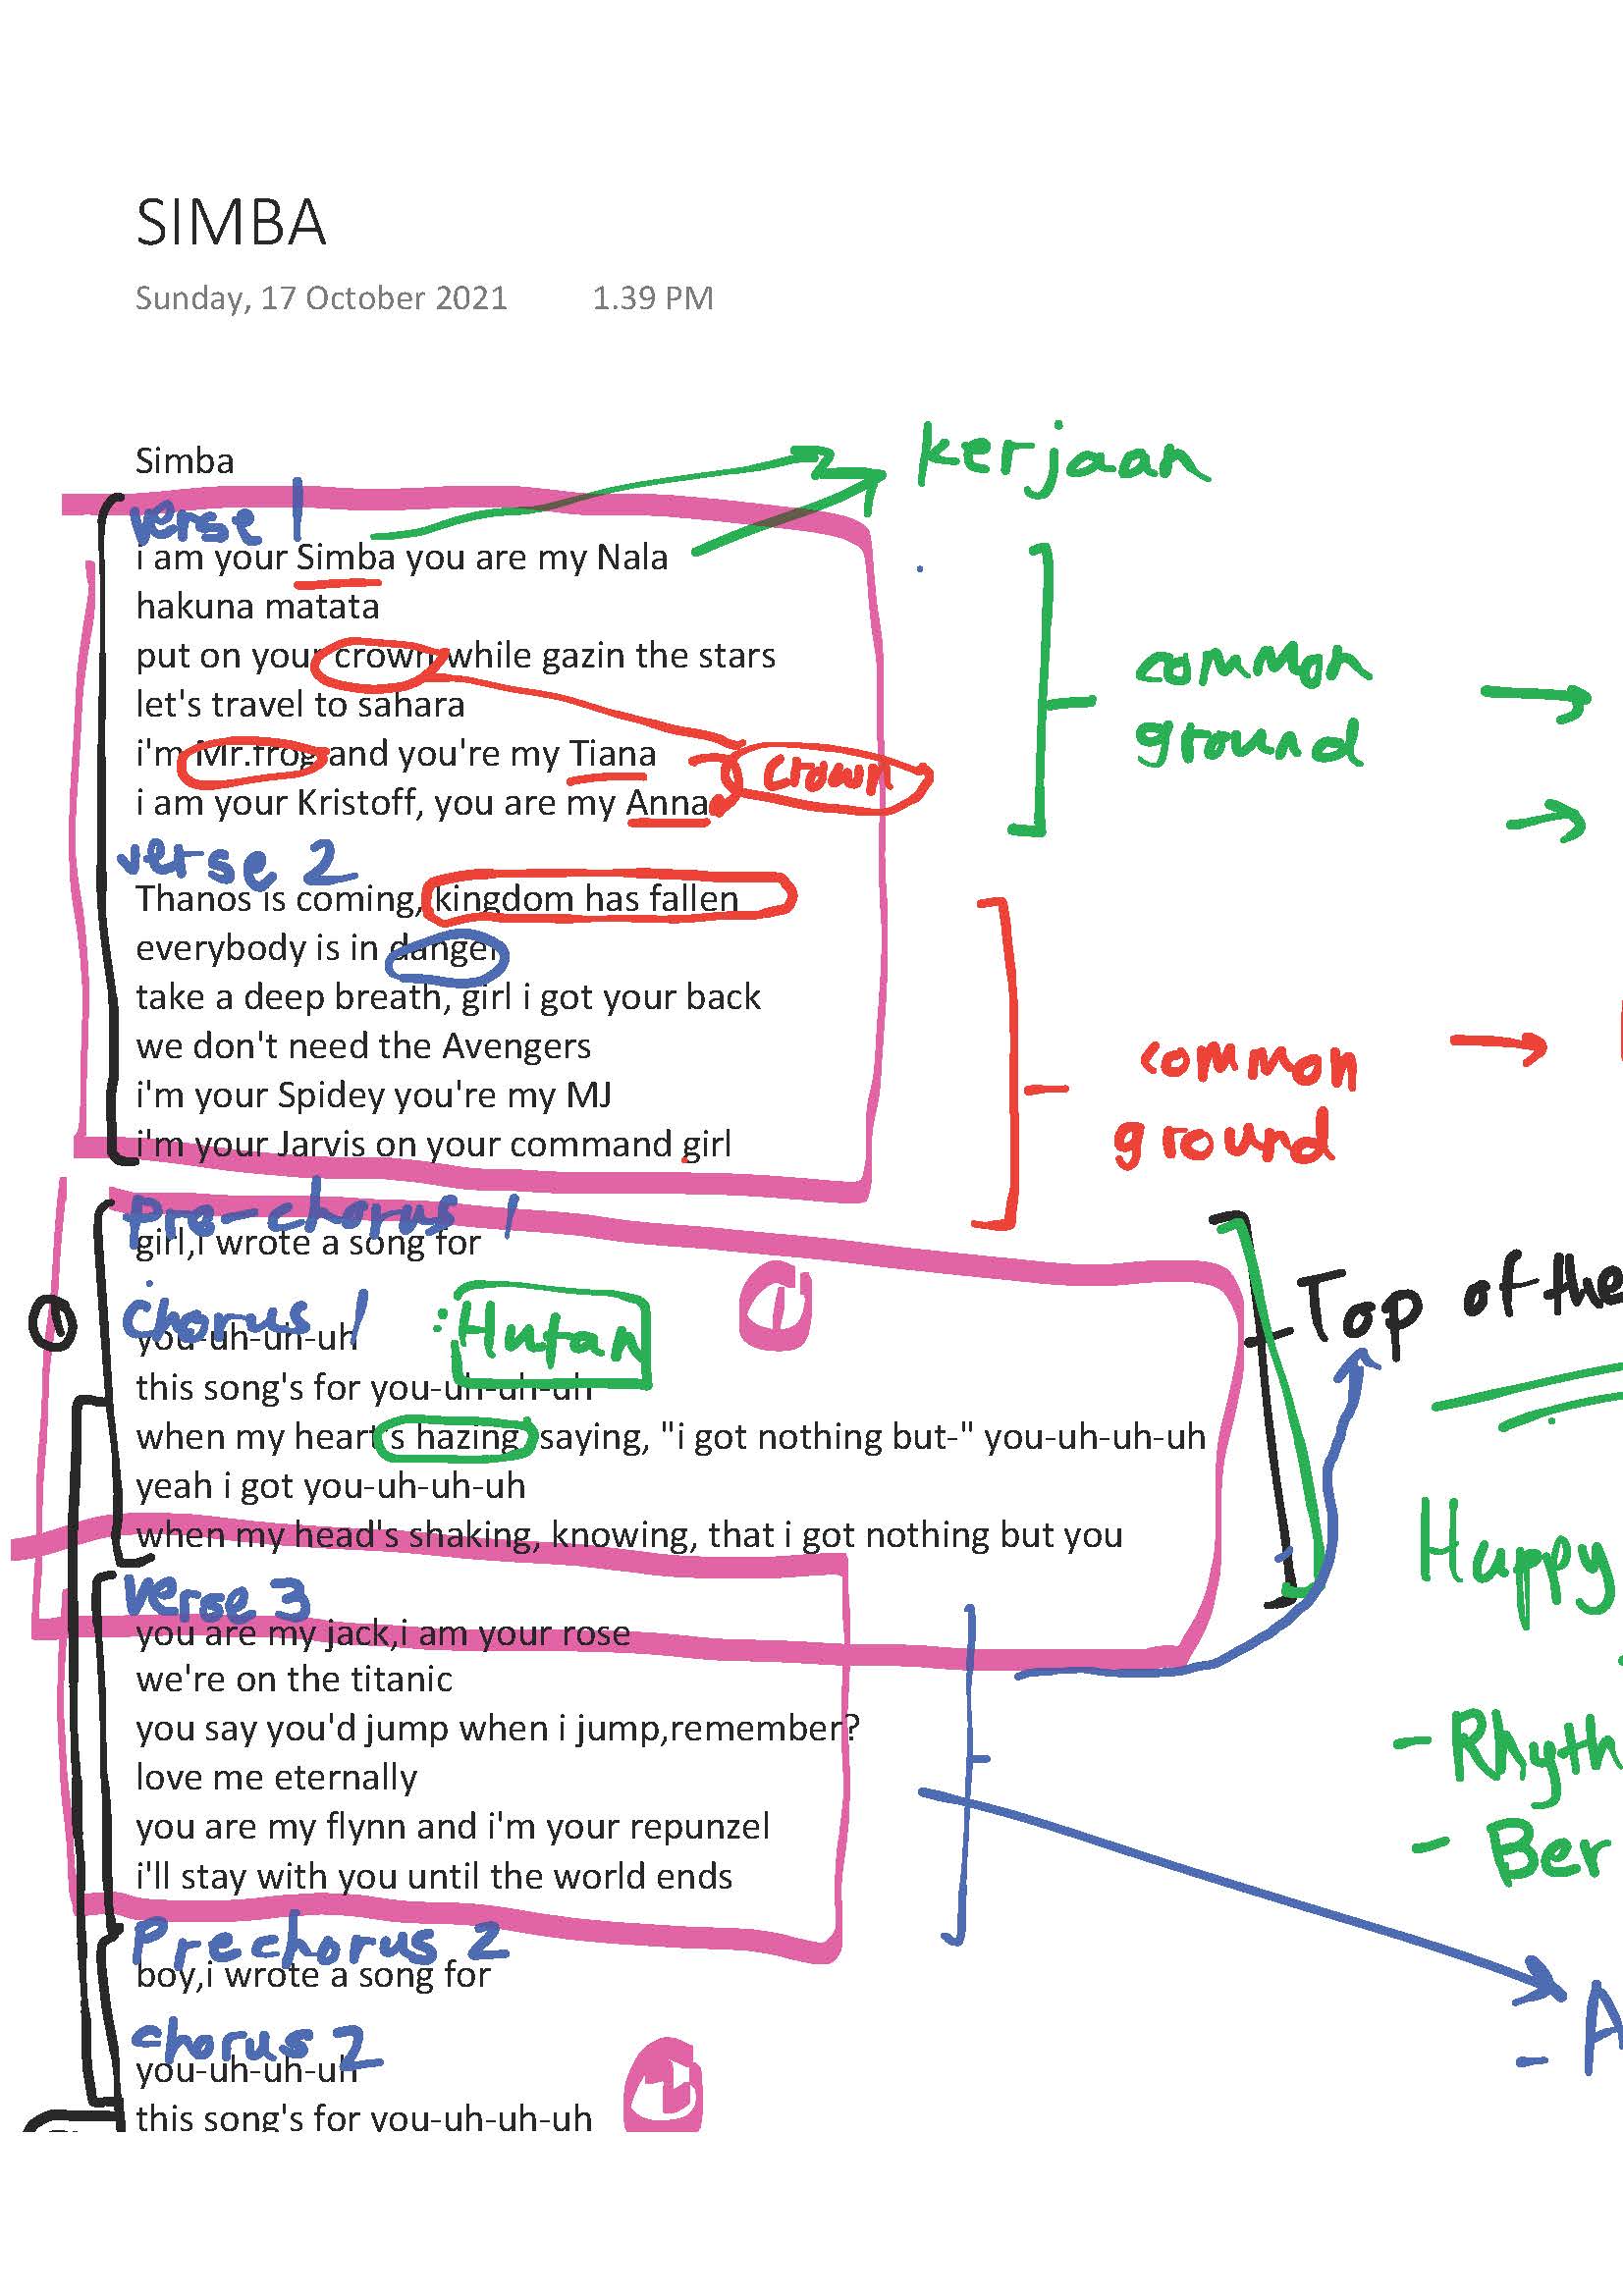 SIMBA
Sunday, 17 October 2021 1.39 PM
Simba
kerjaan
verse 1
i am your Simba you are my Nala
hakuna matata
put on your crown while gazin the stars
let's travel to sahara
i'm Mr.frog and you're my Tiana
crown
i am your Kristoff, you are my Anna
common
ground
verse 2
Thanos is coming, kingdom has fallen
everybody is in danger
take a deep breath, girl i got your back
we don't need the Avengers
i'm your Spidey you're my MJ
i'm your Jarvis on your command girl
common
ground
Pre-chorus 1
girl,i wrote a song for
chorus 1 : Hutan
1
1
Top of the
you-uh-uh-uh
this song's for you-uh-uh-uh
when my heart's hazing, saying, "i got nothing but-" you-uh-uh-uh
yeah i got you-uh-uh-uh
when my head's shaking, knowing, that i got nothing but you
Happy
verse 3
you are my jack,i am your rose
we're on the titanic
you say you'd jump when i jump,remember?
love me eternally
you are my flynn and i'm your repunzel
i'll stay with you until the world ends
- Rhyth
- Ber
Prechorus 2
boy,i wrote a song for
chorus 2
you-uh-uh-uh
this song's for you-uh-uh-uh
2
- A